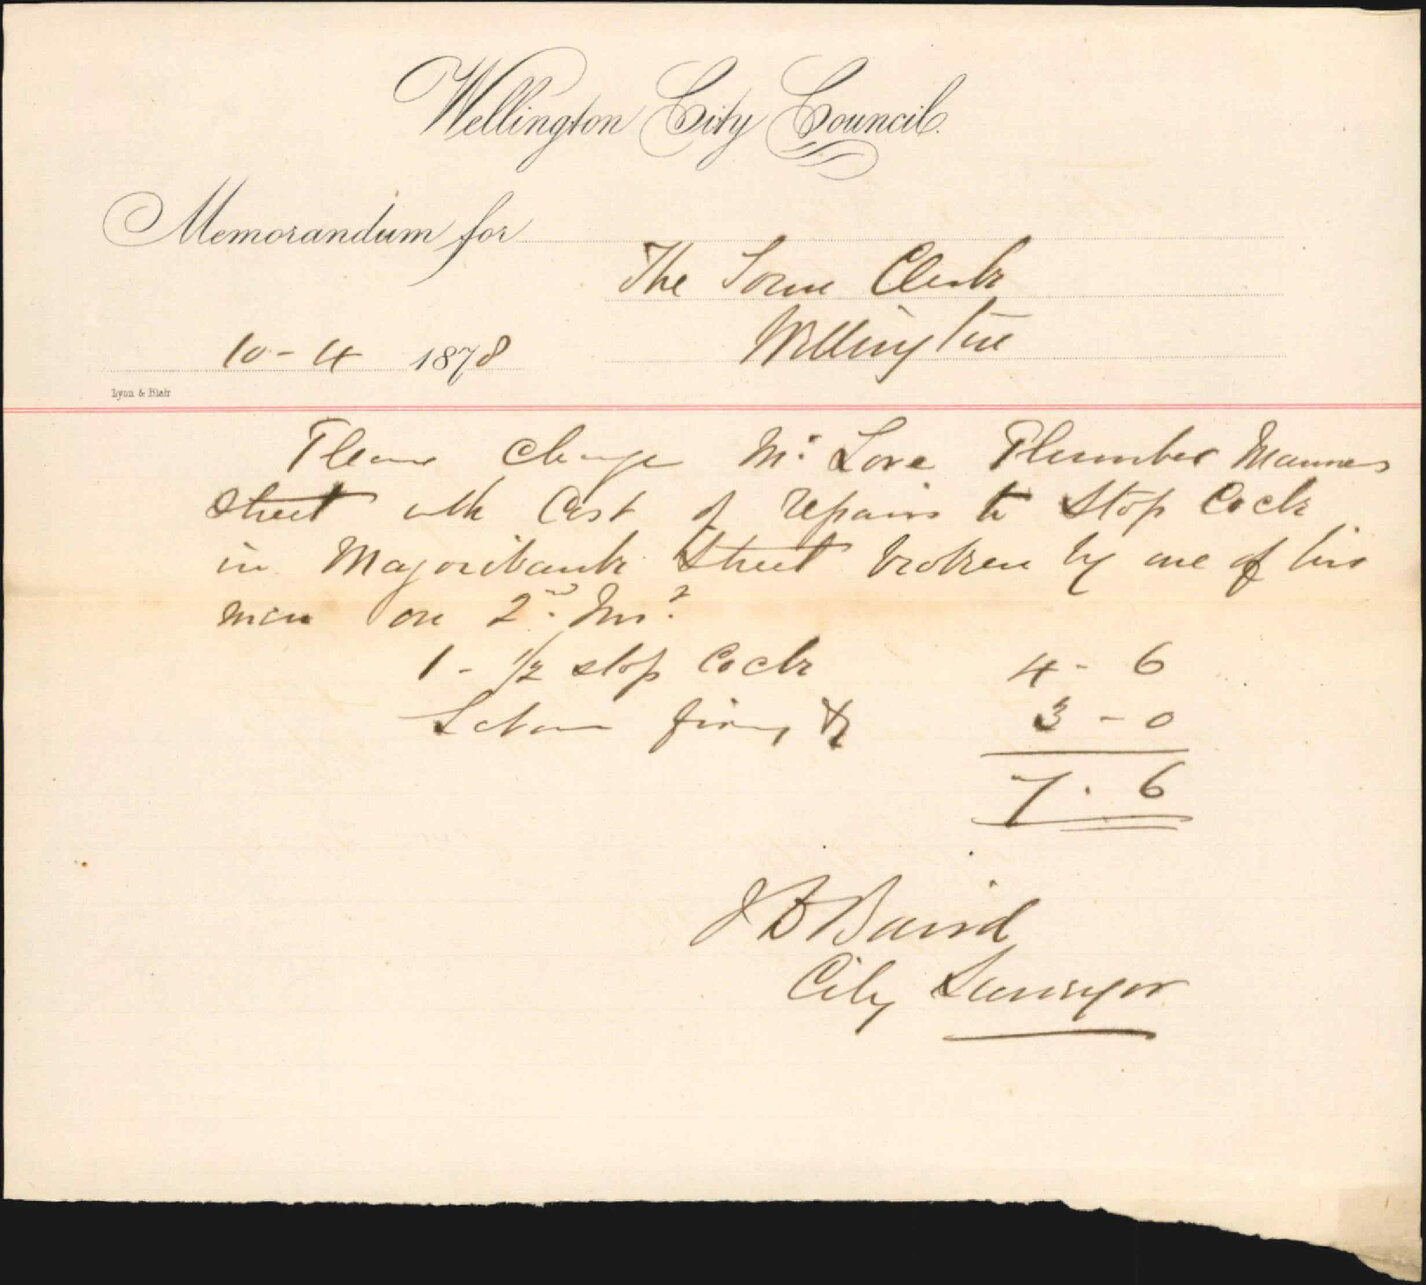 Wellington City Council.
Memorandum for
The Town Clerk
Wellington
10-4 1878
Lyon & Blair
Please charge Mr Love Plumber Manners
Street with Cost of repairs to Stop Cock
in Majoribank Street broken by one of his
men on 2nd
1 - 1/2 stop Cock 4 - 6
Labour fixing &c 3 - 0
7 . 6
J D Baird
City Surveyor